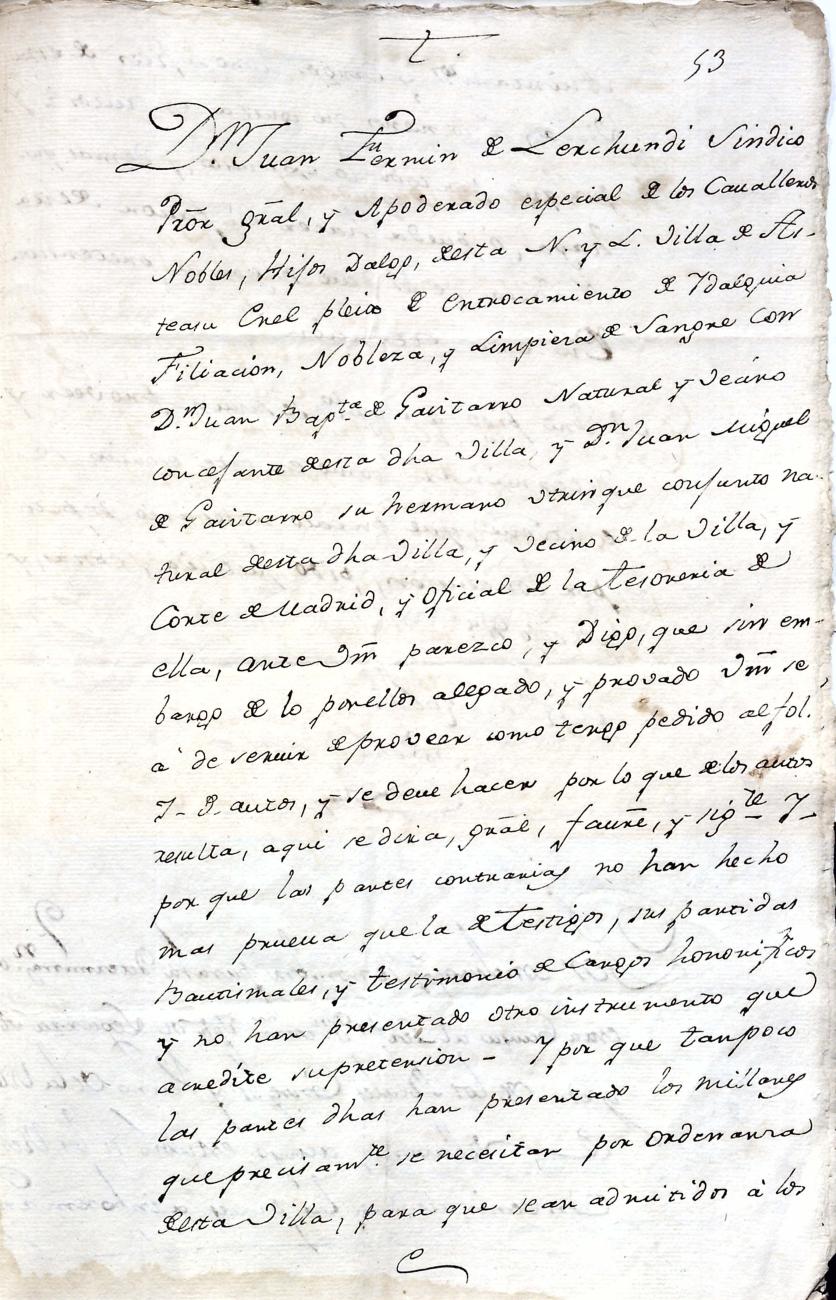 t.
53
D.n Juan Fermin de Lerchundi Sindico
Pror gral, y Apoderado especial de los Cavalleros
Nobles, Hijos Dalgo, desta N. y L. Villa de As-
teasu Enel pleito de entrocamiento de Ydalguia
Filiacion, Nobleza, y Limpieza de Sangre con
D.n Juan Bap.ta de Gaintarro Natural y vecino
concejante desta dha Villa, y D.n Juan Miguel
de Gaintarro su hermano utrinque conjunto na-
tural desta dha Villa, y vecino de la Villa, y
Corte de Madrid, y oficial de la tesoreria de
ella, ante Vm parezco, y Digo, que sin em-
bargo de lo porellos alegado, y provado Vm se
a de servir de proveer como tengo pedido al fol.
7 de autos, y se deve hacer por lo que de los autos
resulta, aqui se dira, gral, faure, y sig.te Y
por que las partes contrarias no han hecho
mas prueva que la de testigos, sus partidas
Bautismales, y testimonio de Cargos honorificos
y no han presentado otro instrumento que
acredite supretension - Y por que tampoco
las partes dhas han presentado los millares
que precisam.te se necesitan por ordenanza
desta Villa, para que sean admitidos à los